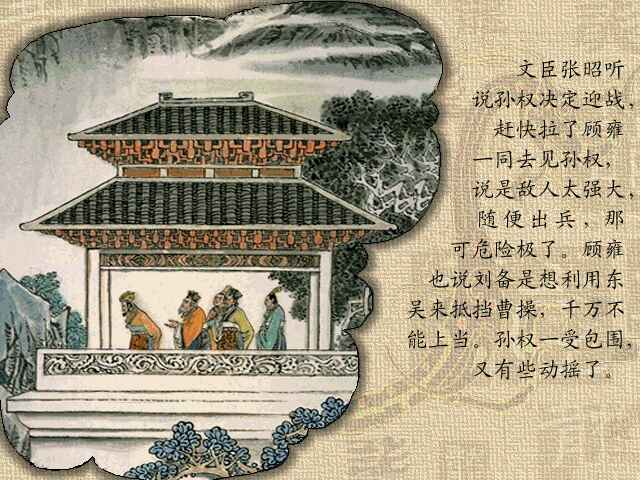 文臣张昭听
说孙权决定迎战，
赶快拉了顾雍
一同去见孙权，
说是敌人太强大，
随便出兵，那
可危险极了。顾雍
也说刘备是想利用东
吴来抵挡曹操，千万不
能上当。孙权一受包围，
又有些动摇了。